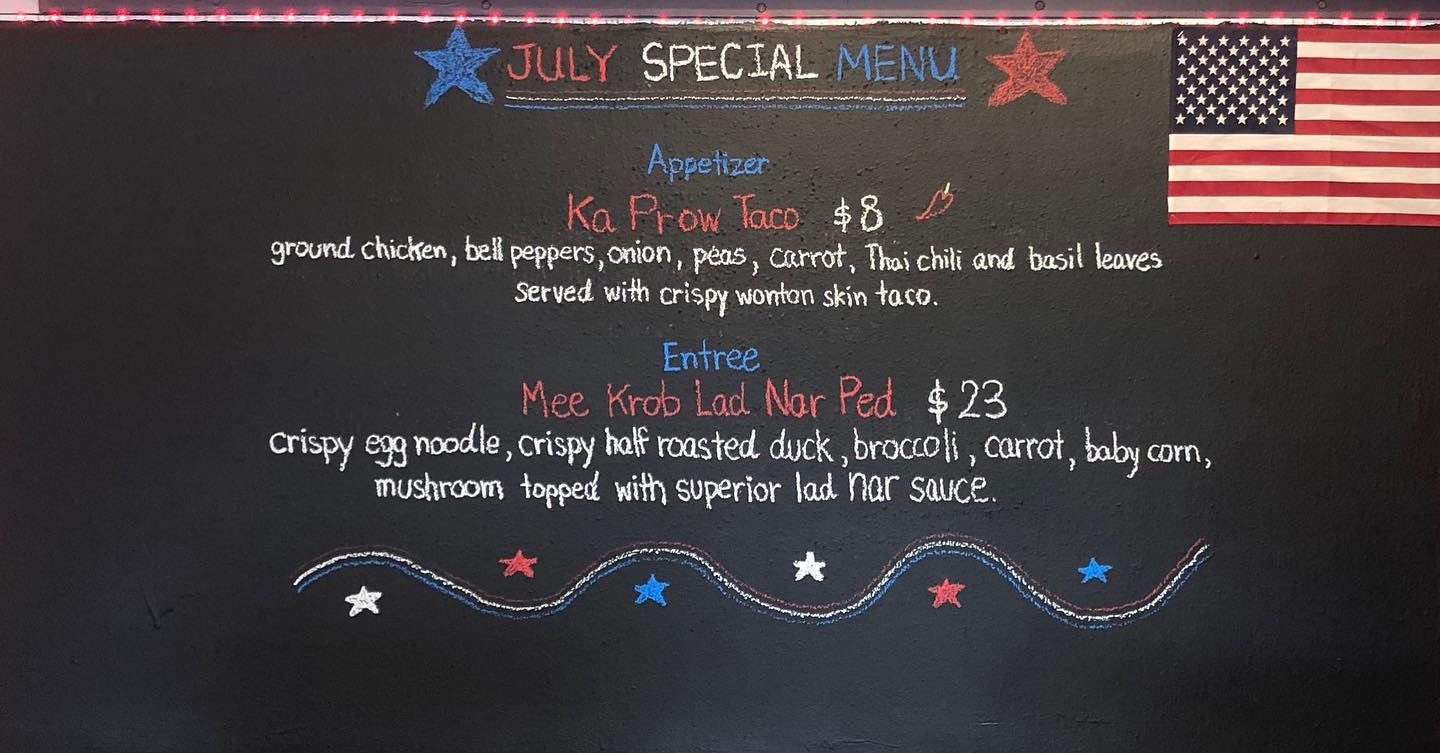 JULY SPECIAL MENU
Appetizer
Ka Prow Taco $8
ground chicken, bell peppers, onion, peas, carrot, Thai chili and basil leaves
Served with crispy wonton skin taco.
Entree
Mee Krob Lad Nar Ped $23
crispy egg noodle, crispy half roasted duck, broccoli, carrot, baby corn,
mushroom topped with superior lad nar sauce.